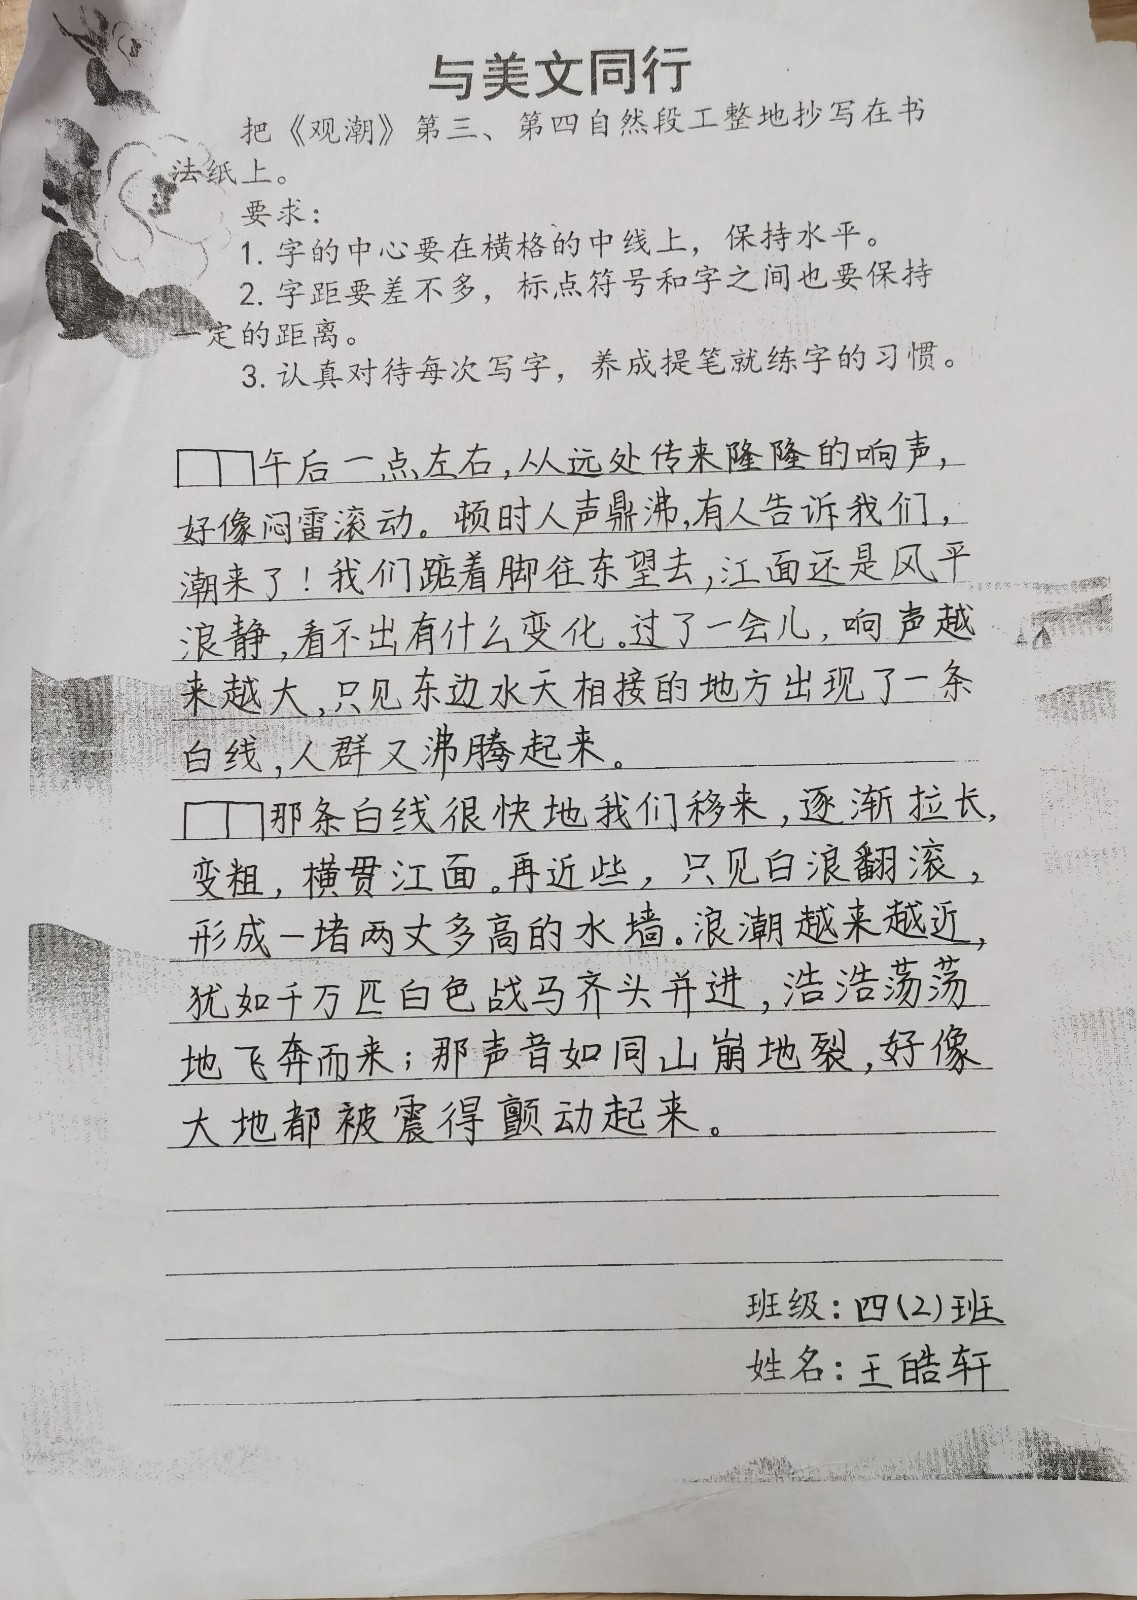 与美文同行
把《观潮》第三、第四自然段工整地抄写在书
法纸上。
要求：
1. 字的中心要在横格的中线上，保持水平。
2. 字距要差不多，标点符号和字之间也要保持
一定的距离。
3. 认真对待每次写字，养成提笔就练字的习惯。
午后一点左右,从远处传来隆隆的响声,
好像闷雷滚动。顿时人声鼎沸,有人告诉我们,
潮来了！我们踮着脚往东望去,江面还是风平
浪静,看不出有什么变化。过了一会儿,响声越
来越大,只见东边水天相接的地方出现了一条
白线,人群又沸腾起来。
那条白线很快地我们移来,逐渐拉长,
变粗,横贯江面。再近些,只见白浪翻滚,
形成一堵两丈多高的水墙。浪潮越来越近,
犹如千万匹白色战马齐头并进,浩浩荡荡
地飞奔而来；那声音如同山崩地裂,好像
大地都被震得颤动起来。
班级：四(2)班
姓名：王皓轩